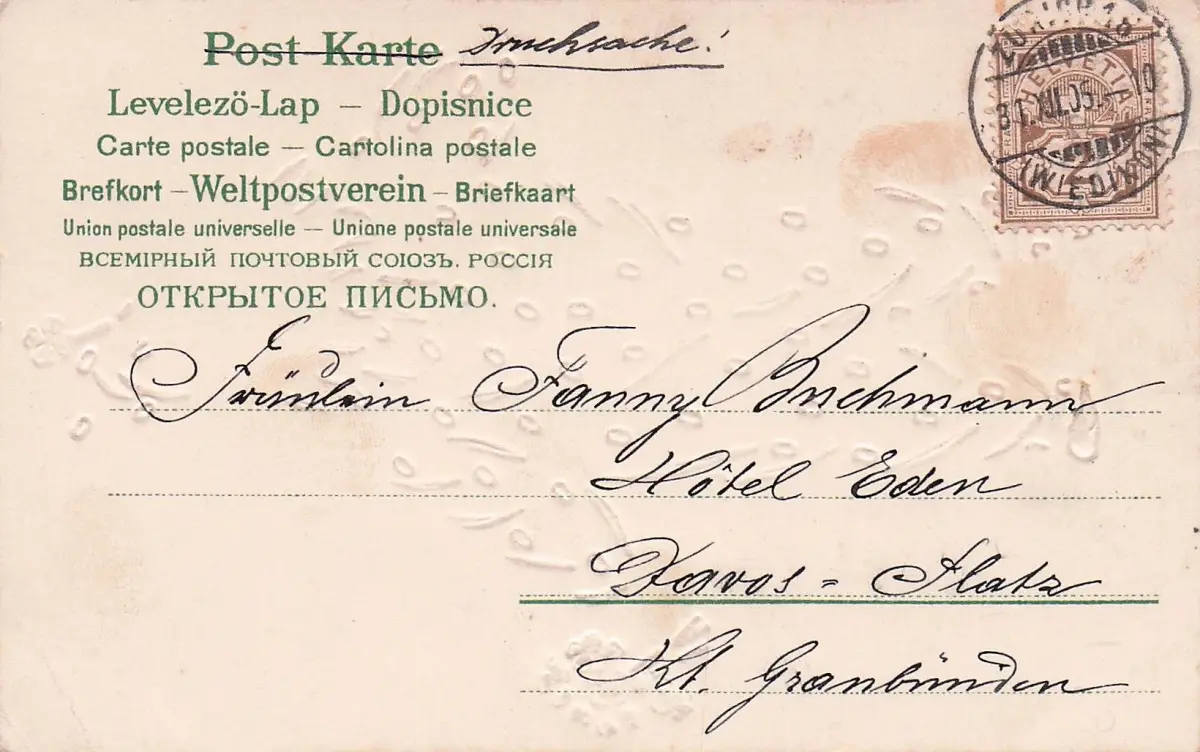 Post Karte Drucksache!
Levelezö-Lap – Dopisnice
Carte postale – Cartolina postale
Brefkort – Weltpostverein – Briefkaart
Union postale universelle – Unione postale universale
ВСЕМІРНЫЙ ПОЧТОВЫЙ СОЮЗЪ. РОССІЯ
ОТКРЫТОЕ ПИСЬМО.
HELVETIA
31.XII.05. 10
(WIEDIKON)
2
Fräulein Fanny Buchmann
Hôtel Eden
Davos = Platz
Kt. Graubünden